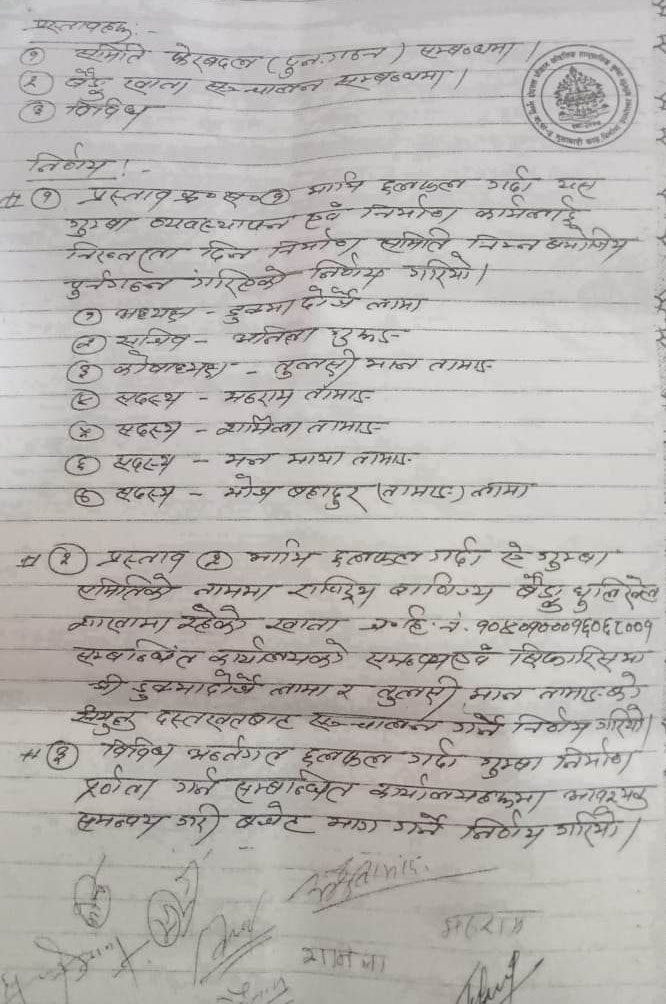 प्रस्तावहरू:-
१ समिति फेरबदल (पुनःगठन) सम्बन्धमा ।
२ बैङ्क खाता सञ्चालन सम्बन्धमा ।
३ विविध
निर्णय !-
# १ प्रस्ताव क्र॰सं॰ १ माथि छलफल गर्दा यस
गुम्बा व्यवस्थापन एवं निर्माण कार्यलाई
निरन्तरता दिन निर्माण समिति निम्न बमोजिम
पुर्नगठन गरिएको निर्णय गरियो ।
१ अध्यक्ष - डुक्मा दोर्जे लामा
२ सचिव -
३ कोषाध्यक्ष - तुल्सी मान तामाङ
४ सदस्य - मनराम तामाङ
५ सदस्य - शर्मिला तामाङ
६ सदस्य - मन माया तामाङ
७ सदस्य - भोज बहादुर (तामाङ) लामा
# २ प्रस्ताव २ माथि छलफल गर्दा ऐ गुम्बा
समितिको नाममा राष्ट्रिय बाणिज्य बैङ्क धुलिखेल
शाखामा रहेको खाता
सम्बन्धित कार्यालयको समन्वय एवं सिफारिसमा
श्री डुक्मा दोर्जे लामा र तुल्सी मान तामाङको
संयुक्त दस्तखतबाट सञ्चालन गर्ने निर्णय गरियो ।
# ३ विविध अर्न्तगत छलफल गर्दा गुम्बा निर्माण
पूर्णता गर्न सम्बन्धित कार्यालयहरूमा आवश्यक
समन्वय गरी बजेट माग गर्ने निर्णय गरियो ।
मनराम